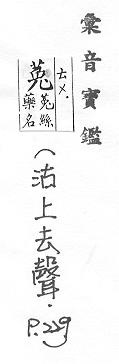 彙音寶鑑
ㄊㄨˋ
菟 菟絲藥名
(沽上去聲.
P.229